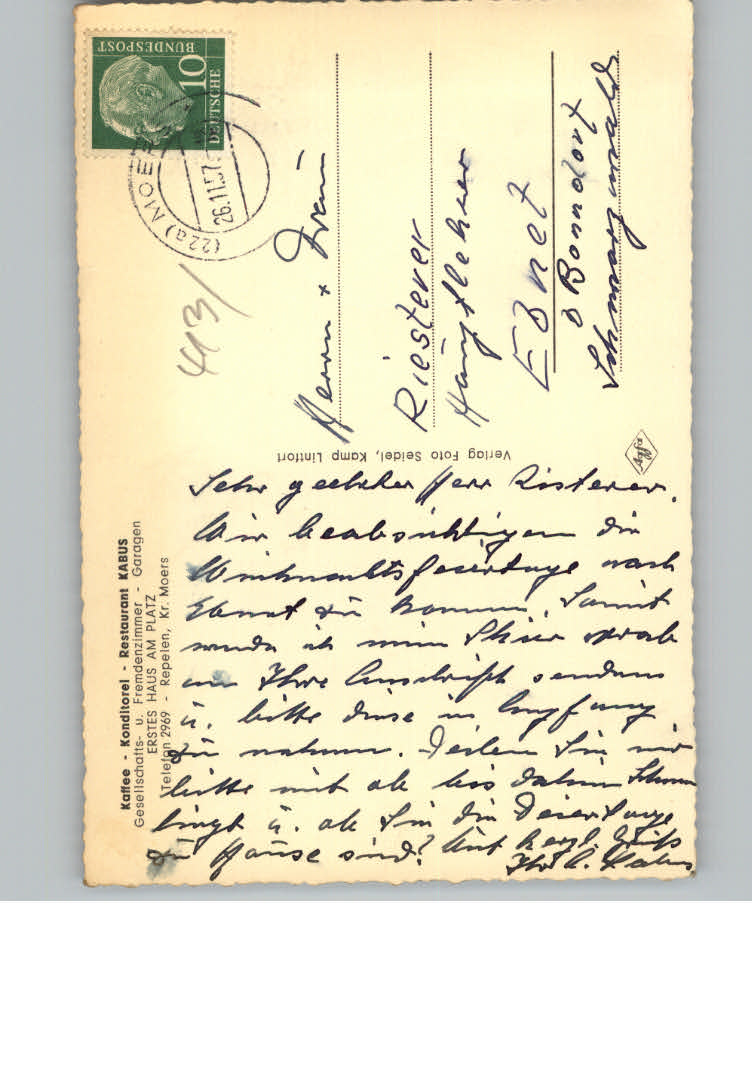 Kaffee - Konditorei - Restaurant KABUS
Gesellschafts- u. Fremdenzimmer - Garagen
ERSTES HAUS AM PLATZ
Telefon 2969 - Repelen, Kr. Moers
DEUTSCHE
BUNDESPOST
10
(22a) MOERS
26.11.57
413/
Herrn + Frau
Riesterer
Hauptlehrer
Ebnet
b Bonndorf
Schwarzwald
Verlag Foto Seidel, Kamp Lintfort
Agfa
Sehr geehrter Herr Risterer.
Wir beabsichtigen die
Weihnachtsfeiertage nach
Ebnet zu kommen. Somit
werde ich meine Skier vorab
an Ihre Anschrift senden
u. bitte diese in Empfang
zu nehmen. Teilen Sie mir
bitte mit ob bis dahin Schnee
liegt u. ob Sie die Feiertage
zu Hause sind? Mit herzl. Gruß
Ihr Kabus